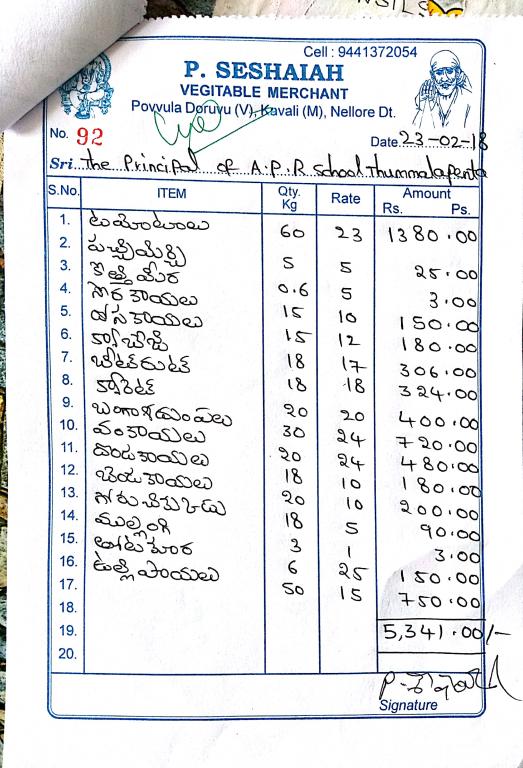 Cell : 9441372054
P. SESHAIAH
VEGITABLE MERCHANT
Povvula Doruvu (V), Kavali (M), Nellore Dt.
No. 92 Date. 23-02-18
Sri. The Principal of A.P.R School Thummalapenta
S.No. ITEM Qty. Kg Rate Amount Rs. Ps.
1. టమోటాలు 60 23 1380.00
2. పచ్చిమిర్చి 5 5 25.00
3. కొత్తిమీర 0.6 5 3.00
4. సొరకాయలు 15 10 150.00
5. దోసకాయలు 15 12 180.00
6. క్యాబేజి 18 17 306.00
7. బీట్‌రూట్ 18 18 324.00
8. క్యారెట్ 20 20 400.00
9. బంగాళదుంపలు 30 24 720.00
10. వంకాయలు 20 24 480.00
11. దొండకాయలు 18 10 180.00
12. బెండకాయలు 20 10 200.00
13. గోరుచిక్కుడు 18 5 90.00
14. ముల్లంగి 3 1 3.00
15. తోటకూర 6 25 150.00
16. ఉల్లిపాయలు 50 15 750.00
17.
18.
19. 5,341.00/-
20.
Signature